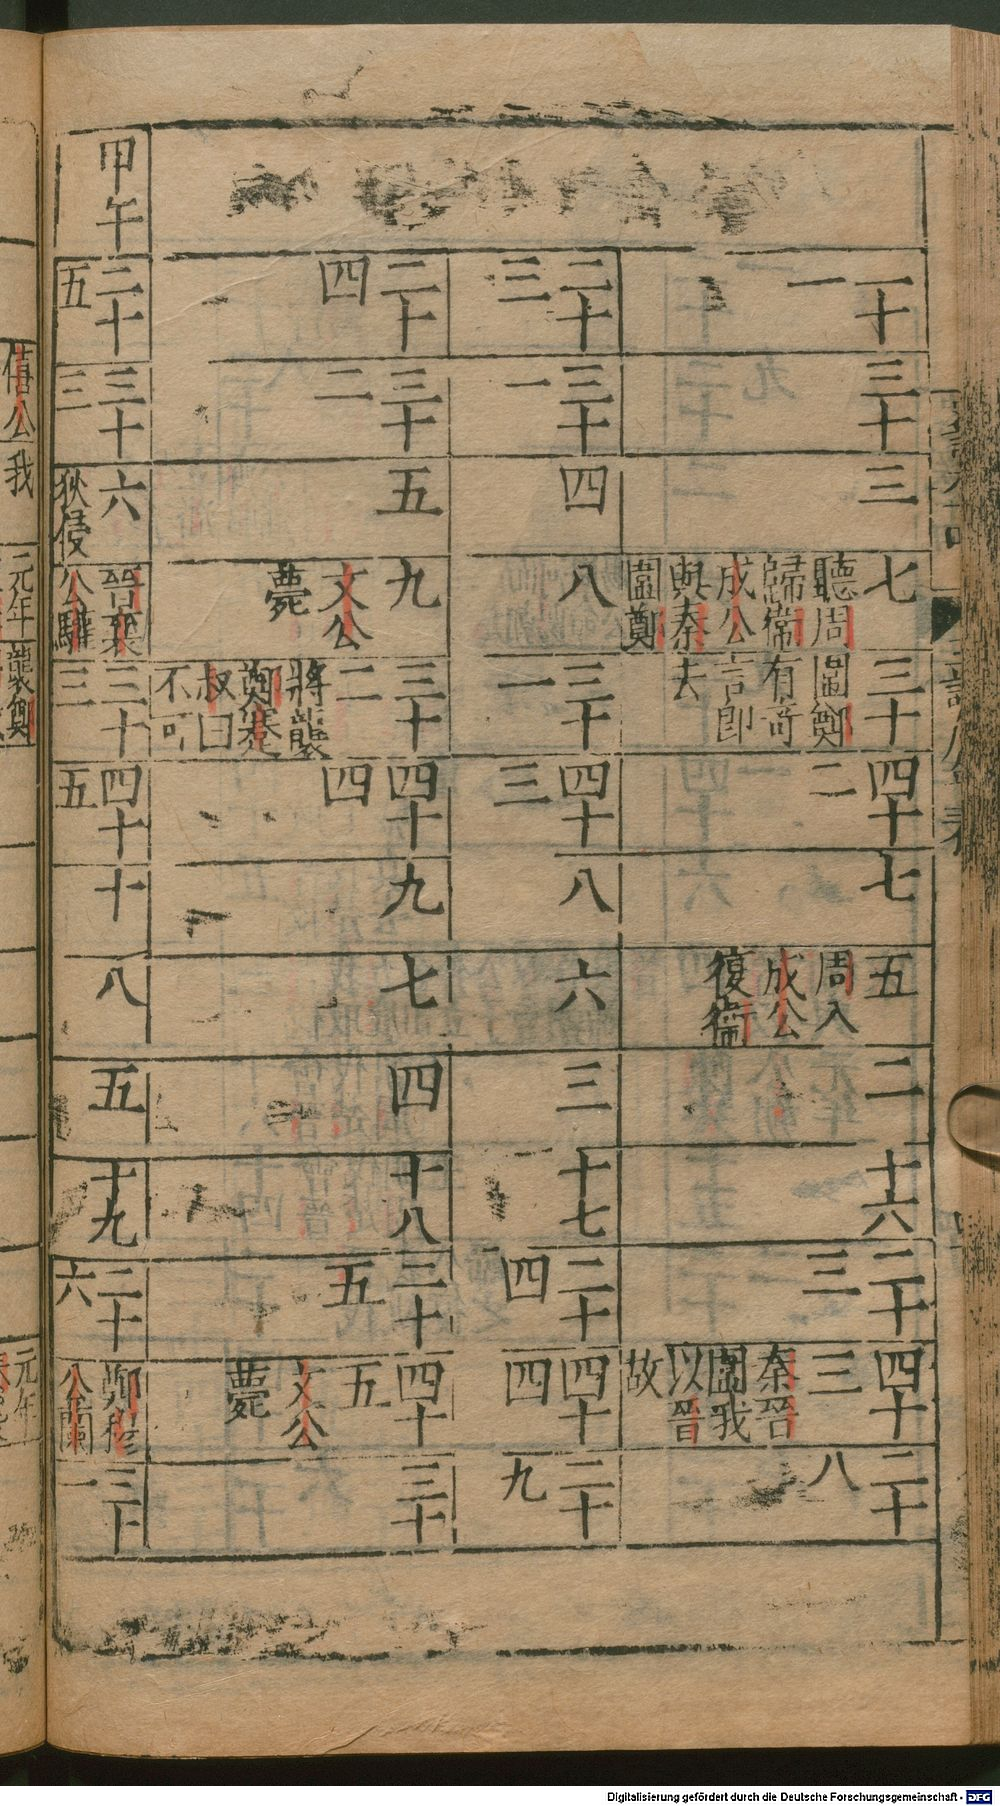 三十
三
七
聽周
歸衛
成公
與秦
圍鄭
三十
圍鄭
有奇
言即
去
四十
二
七
五
周入
成公
復衛
二
十六
二十
三
四十
三
秦晉
圍我
以晉
故
二十
八
二十
三
三十
一
四
八
三十
一
四十
三
八
六
三
十七
二十
四
四十
四
二十
九
二十
四
三十
二
五
九
文公
薨
三十
二
將襲
鄭蹇
叔曰
不可
四十
四
九
七
四
十八
三十
五
四十
五
文公
薨
三十
甲午
二十
五
三十
三
六
狄侵
晉襄
公驩
三十
三
四十
五
十
八
五
十九
二十
六
鄭穆
公蘭
三十
一
僖公
我
元年
襲鄭
元年
Digitalisierung gefördert durch die Deutsche Forschungsgemeinschaft - DFG